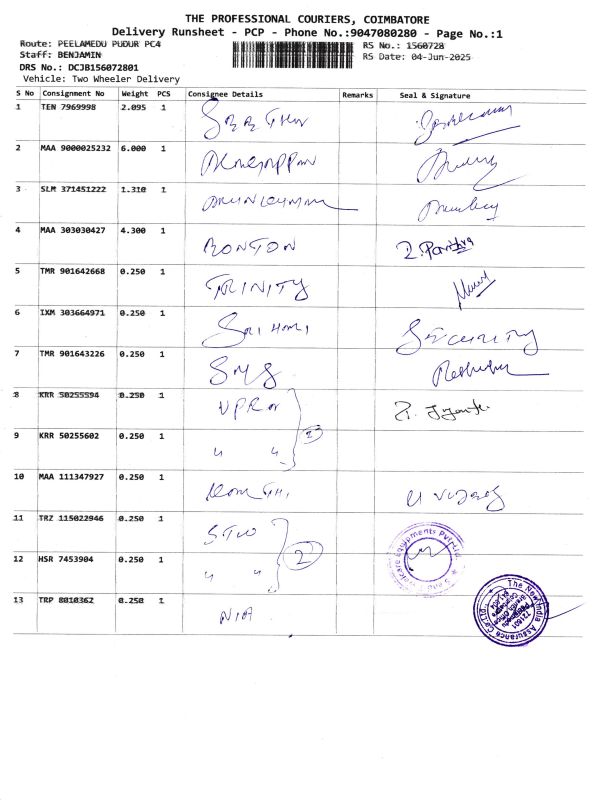 THE PROFESSIONAL COURIERS, COIMBATORE
Delivery Runsheet - PCP - Phone No.:9047080280 - Page No.:1
Route: PEELAMEDU PUDUR PC4
RS No.: 1560728
Staff: BENJAMIN
RS Date: 04-Jun-2025
DRS No.: DCJB156072801
Vehicle: Two Wheeler Delivery
S No Consignment No Weight PCS Consignee Details Remarks Seal & Signature
1 TEN 7969998 2.095 1
2 MAA 9000025232 6.000 1
3 SLM 371451222 1.310 1
4 MAA 303030427 4.300 1 RONTON
5 TMR 901642668 0.250 1 TRINITY
6 IXM 303664971 0.250 1 SRI HARI SECURITY
7 TMR 901643226 0.250 1 SMS
8 KRR 50255594 0.250 1 2
9 KRR 50255602 0.250 1 " "
10 MAA 111347927 0.250 1
11 TRZ 115022946 0.250 1
12 HSR 7453904 0.250 1 " " 2
13 TRP 8010362 0.250 1 NIA
Equipments Pvt. Ltd.
The New India Assurance Co.
721601